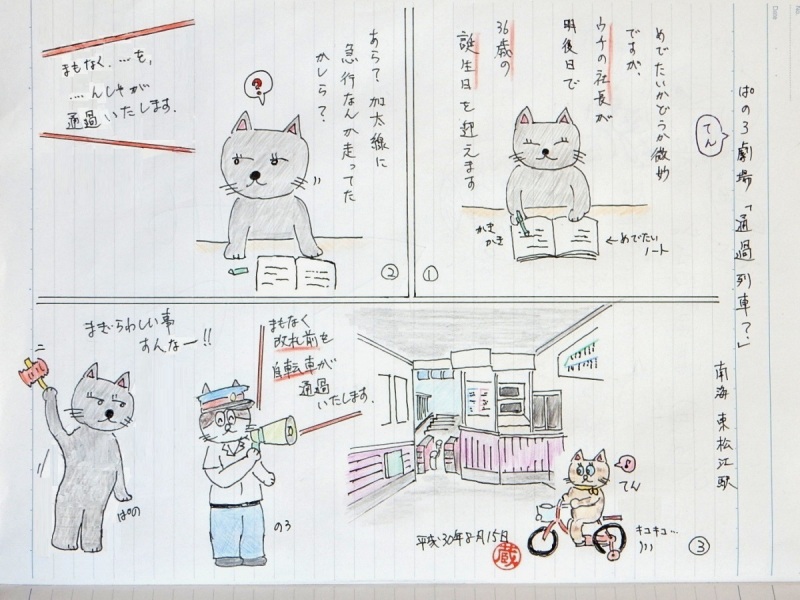 ぱのろ劇場「通過列車？」
てん
南海 東松江駅
めでたいかどうか微妙
ですが、
ウチの社長が
明後日で
36歳の
誕生日を迎えます
かきかき
←めでたい
ノート
①
あら？加太線に
急行なんか走ってた
かしら？
?
まもなく……を,
……んしゃが
通過いたします.
②
まぎらわしい事
すんなー!!
ぱの
まもなく
改札前を
自転車が
通過
いたします.
のろ
♪
てん
キコキコ…
平成30年8月15日
蔵
③